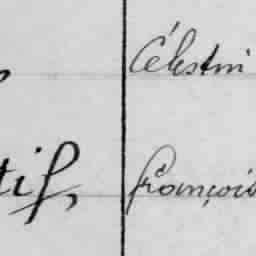 Célestin
tif, françois